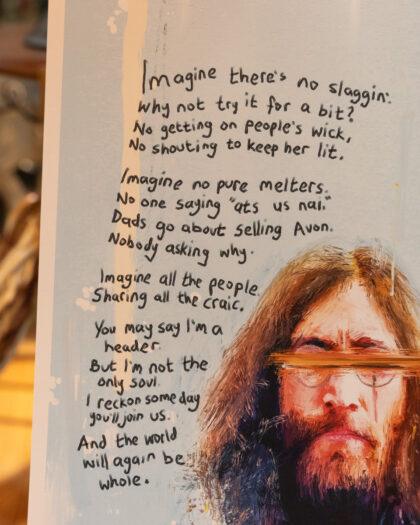 Imagine there's no slaggin'.
Why not try it for a bit?
No getting on people's wick,
No shouting to keep her lit.
Imagine no pure melters.
No one saying "ats us nai."
Dads go about selling Avon.
Nobody asking why.
Imagine all the people
Sharing all the craic.
You may say I'm a
header.
But I'm not the
only soul.
I reckon some day
you'll join us.
And the world
will again be
whole.